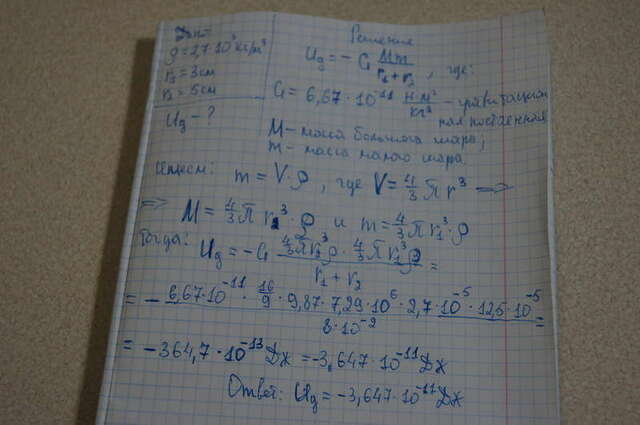 Дано:
ρ = 2,7·10³ кг/м³
r₁ = 3 см
r₂ = 5 см
U_g - ?
Решение
U_g = - G Mm / r₁ + r₂ , где:
G = 6,67·10⁻¹¹ Н·м²/кг² - гравитацион
ная постоянная
M - масса большого шара;
m - масса малого шара.
m = V·ρ , где V = 4/3 π r³ =>
=> M = 4/3 π r₂³·ρ и m = 4/3 π r₁³·ρ
Тогда: U_g = - G 4/3 π r₂³ρ · 4/3 π r₁³ρ / r₁ + r₂ =
= - 6,67·10⁻¹¹ · 16/9 · 9,87 · 7,29·10⁶ · 2,7·10⁻⁵ · 12,5·10⁻⁵ / 8·10⁻² =
= -364,7·10⁻¹³ Дж = -3,647·10⁻¹¹ Дж
Ответ: U_g = -3,647·10⁻¹¹ Дж